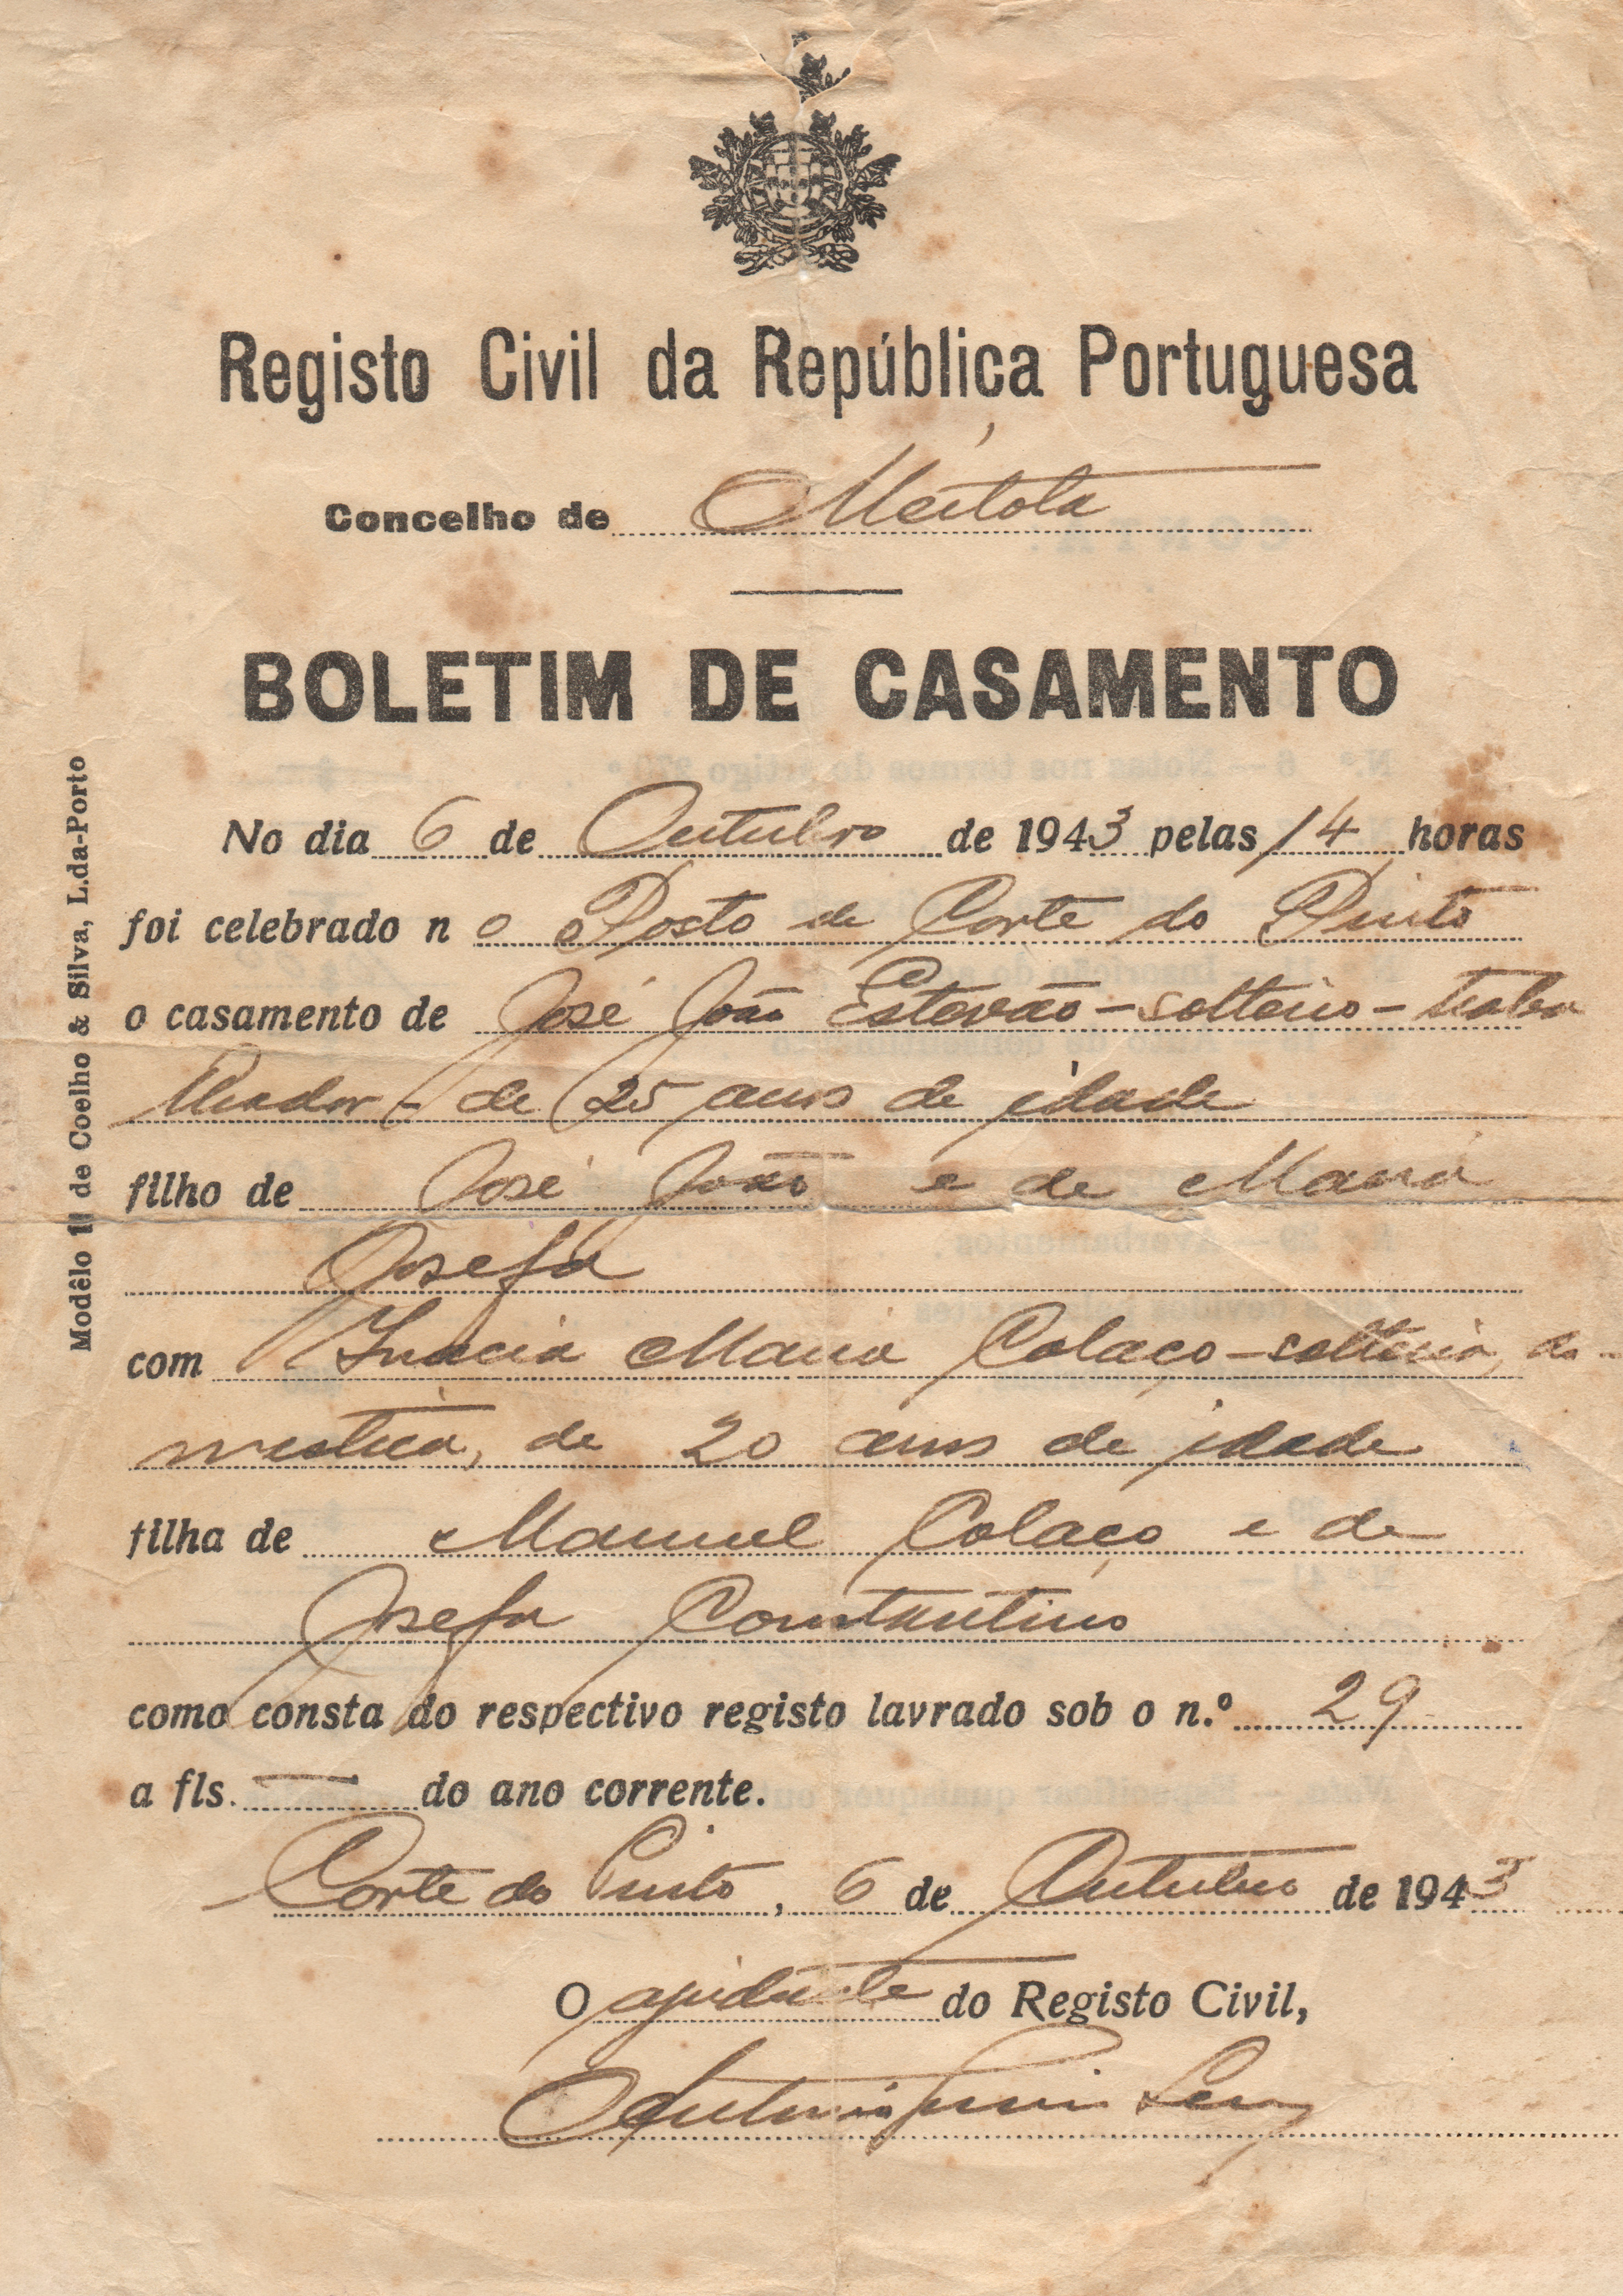 Registo Civil da República Portuguesa
Concelho de Mértola
BOLETIM DE CASAMENTO
No dia 6 de Outubro de 1943 pelas 14 horas
foi celebrado n o Posto de Corte do Pinto
o casamento de José João Estevão - solteiro - traba
lhador - de 25 anos de idade
filho de José João e de Maria
Josefa
com Inácia Maria Colaço - solteira, do-
mestica, de 20 anos de idade
filha de Manuel Colaço e de
Josefa Constantino
como consta do respectivo registo lavrado sob o n.º 29
a fls. — do ano corrente.
Corte do Pinto, 6 de Outubro de 1943
O ajudante do Registo Civil,
Modêlo 11 de Coelho & Silva, L.da-Porto